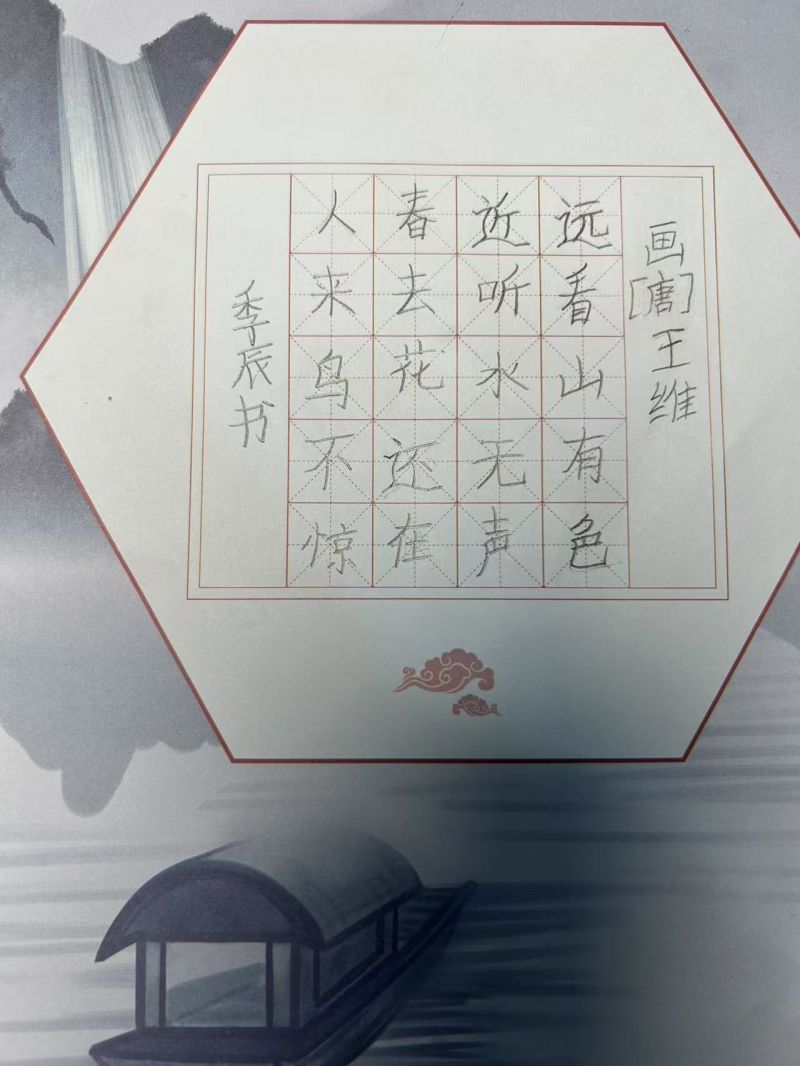 画[唐]王维
远看山有色
近听水无声
春去花还在
人来鸟不惊
季辰书